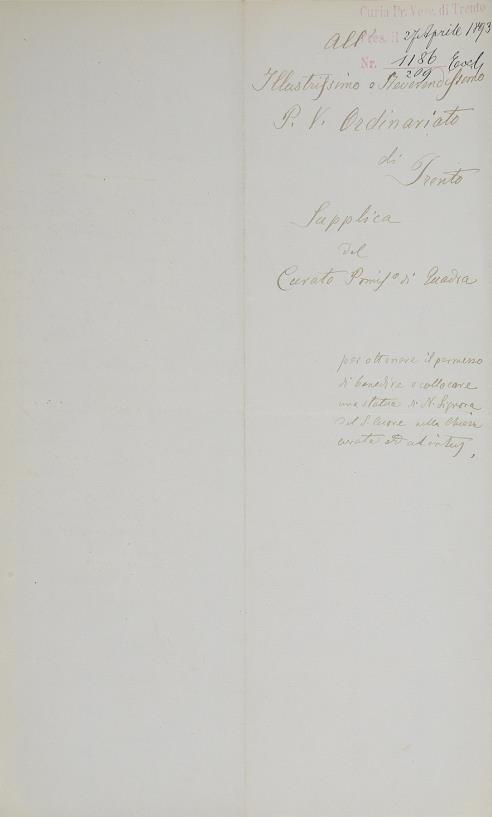 Curia Pr. Vesc. di Trento
All'
Pres. il 27 Aprile 1893
Nr. 1186 Eccl
209
Illustrissimo e Reverendissimo
P. V. Ordinariato
di
Trento
Supplica
del
Curato di Quadra
per ottenere il permesso
di benedire e collocare
una statua di N. Signora
del S. Cuore nella Chiesa
curata ad